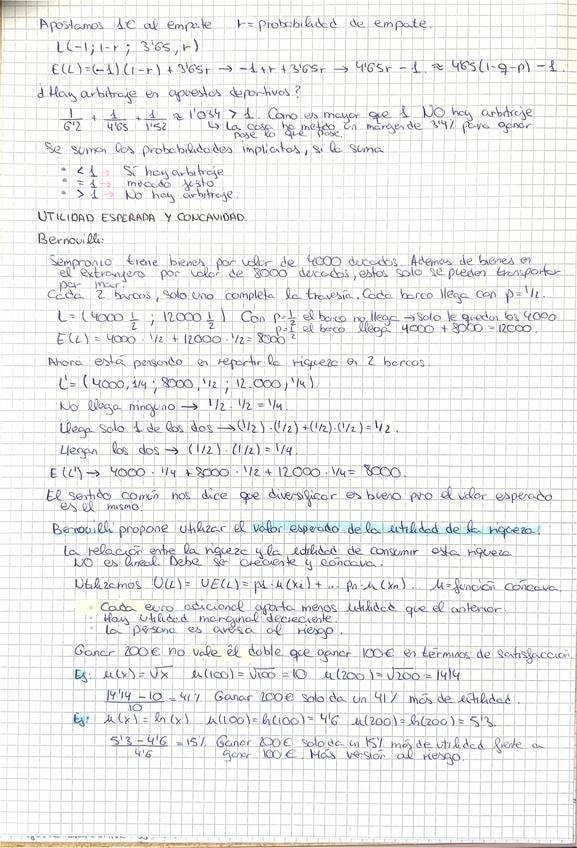 Apostamos 1€ al empate r = probabilidad de empate.
L(-1; 1-r; 3'65, r)
E(L) = (-1)(1-r) + 3'65r → -1+r+3'65r → 4'65r - 1. ≈ 4'65(1-q-p) - 1.
¿Hay arbitraje en apuestas deportivas?
1/6'2 + 1/4'65 + 1/1'52 ≈ 1'034 > 1. Como es mayor que 1 NO hay arbitraje
↳ La casa ha metido un márgen de 3'4% para ganar
pase lo que pase.
Se suman las probabilidades implícitas, si la suma
• < 1 → Sí hay arbitraje
• = 1 → mercado justo
• > 1 → No hay arbitraje.
UTILIDAD ESPERADA Y CONCAVIDAD.
Bernouilli:
Sempronio tiene bienes por valor de 4000 ducados. Además de bienes en
el extranjero por valor de 8000 ducados, estos solo se pueden transportar
por mar.
Cada 2 barcos, solo uno completa la travesía. Cada barco llega con p = 1/2.
L = (4000 1/2 ; 12000 1/2) Con p = 1/2 el barco no llega → solo le quedan los 4000
p = 1/2 el barco llega 4000 + 8000 = 12000.
E(L) = 4000 · 1/2 + 12000 · 1/2 = 8000
Ahora está pensando en repartir la riqueza en 2 barcos.
L' = (4000, 1/4 ; 8000, 1/2 ; 12.000, 1/4).
No llega ninguno → 1/2 · 1/2 = 1/4.
Llega solo 1 de los dos → (1/2)·(1/2) + (1/2)·(1/2) = 1/2.
Llegan los dos → (1/2)·(1/2) = 1/4.
E(L') → 4000 · 1/4 + 8000 · 1/2 + 12000 · 1/4 = 8000.
El sentido común nos dice que diversificar es bueno pero el valor esperado
es el mismo.
Bernouilli propone utilizar el valor esperado de la utilidad de la riqueza.
La relación entre la riqueza y la utilidad de consumir esta riqueza
NO es lineal. Debe ser creciente y cóncava.
Utilizamos U(L) = UE(L) = p1 · u(x1) + ... pn · u(xn). u = función cóncava.
• Cada euro adicional aporta menos utilidad que el anterior.
• Hay utilidad marginal decreciente.
• La persona es aversa al riesgo.
Ganar 200€ no vale el doble que ganar 100€ en términos de satisfacción.
Ej: u(x) = √x u(100) = √100 = 10 u(200) = √200 = 14'14
14'14 - 10 / 10 = 41% Ganar 200€ solo da un 41% más de utilidad.
Ej: u(x) = ln(x) u(100) = ln(100) = 4'6 u(200) = ln(200) = 5'3.
5'3 - 4'6 / 4'6 = 15% Ganar 200€ solo da un 15% más de utilidad frente a
ganar 100€. Más versión al riesgo.